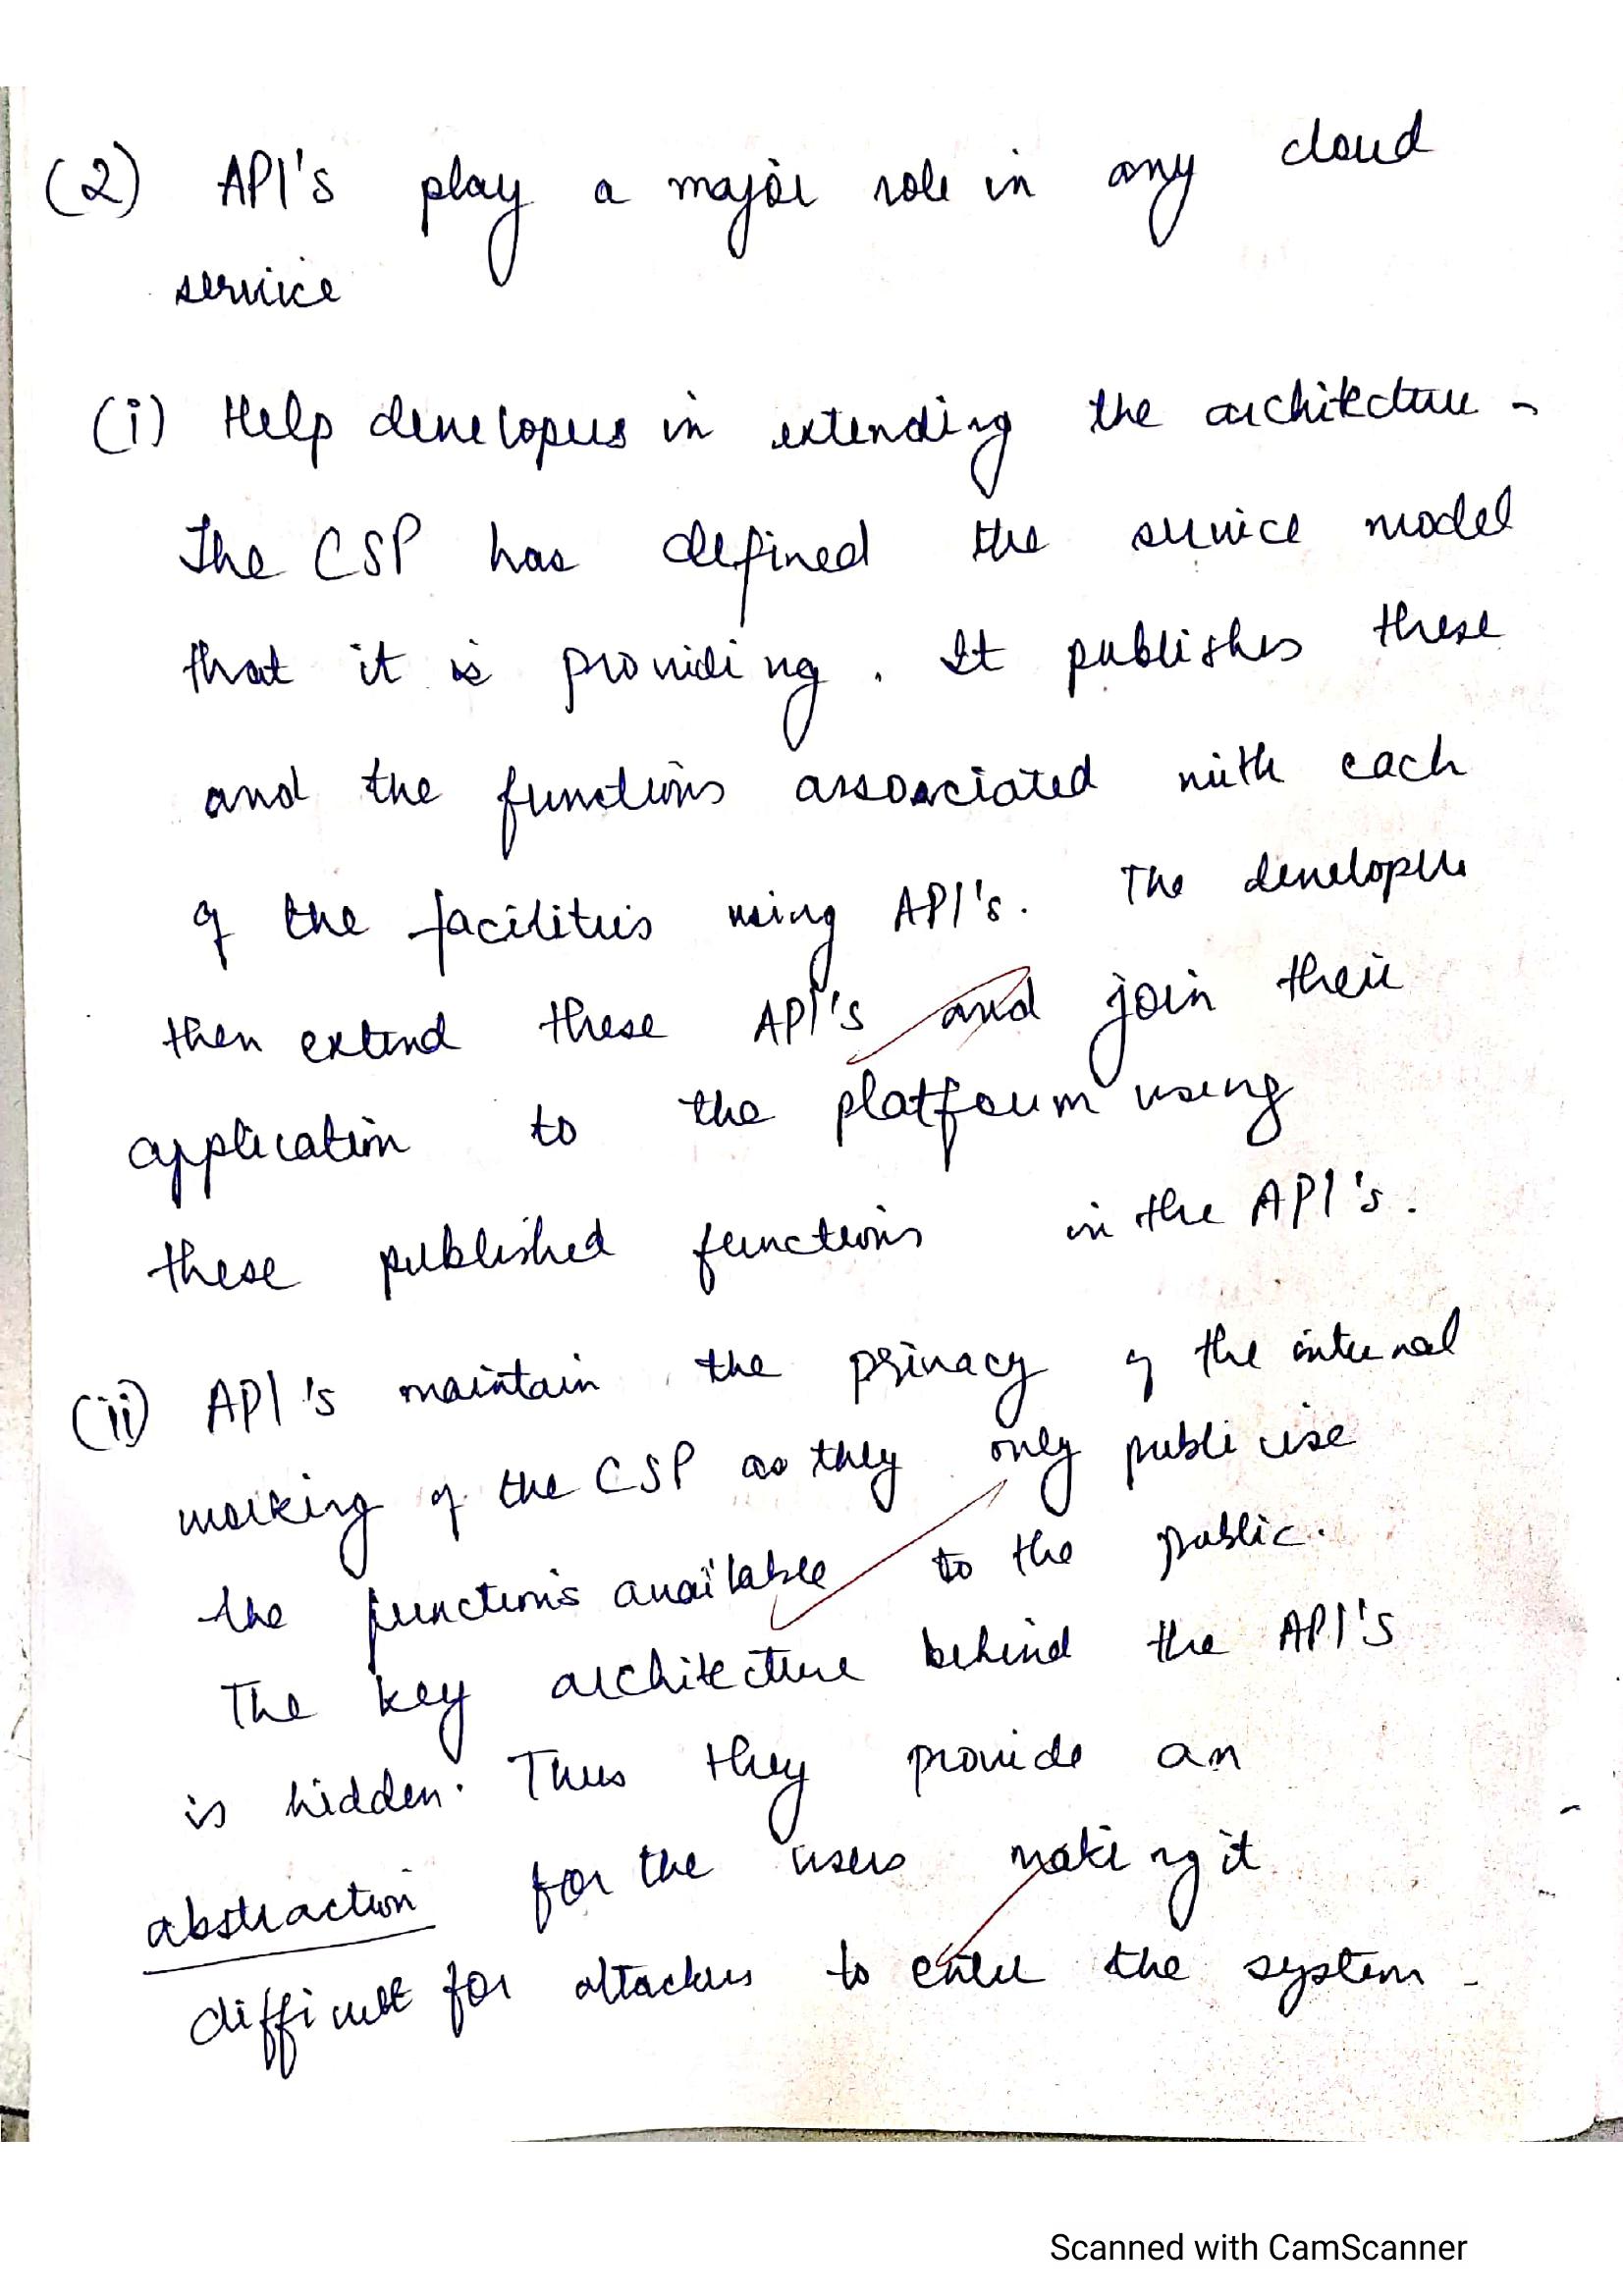 (2) API's play a major role in any cloud
service
(i) Help developers in extending the architecture -
The CSP has defined the service model
that it is providing. It publishes these
and the functions associated with each
of the facilities using API's. The developers
then extend these API's and join their
application to the platform using
these published functions in the API's.
(ii) API's maintain the privacy of the internal
working of the CSP as they only publicise
the functions available to the public.
The key architecture behind the API's
is hidden. Thus they provide an
abstraction for the users making it
difficult for attackers to enter the system -
Scanned with CamScanner